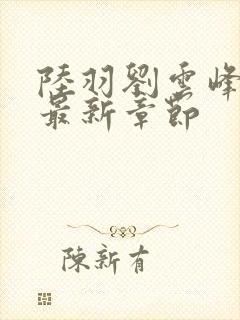 陸羽劉雲峰
最新章節
陳新有